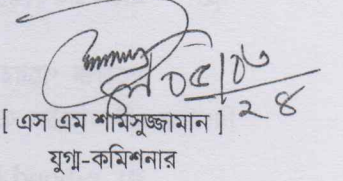 ০৫/০৬
২৪
[ এস এম শামিসুজ্জামান ]
যুগ্ম-কমিশনার